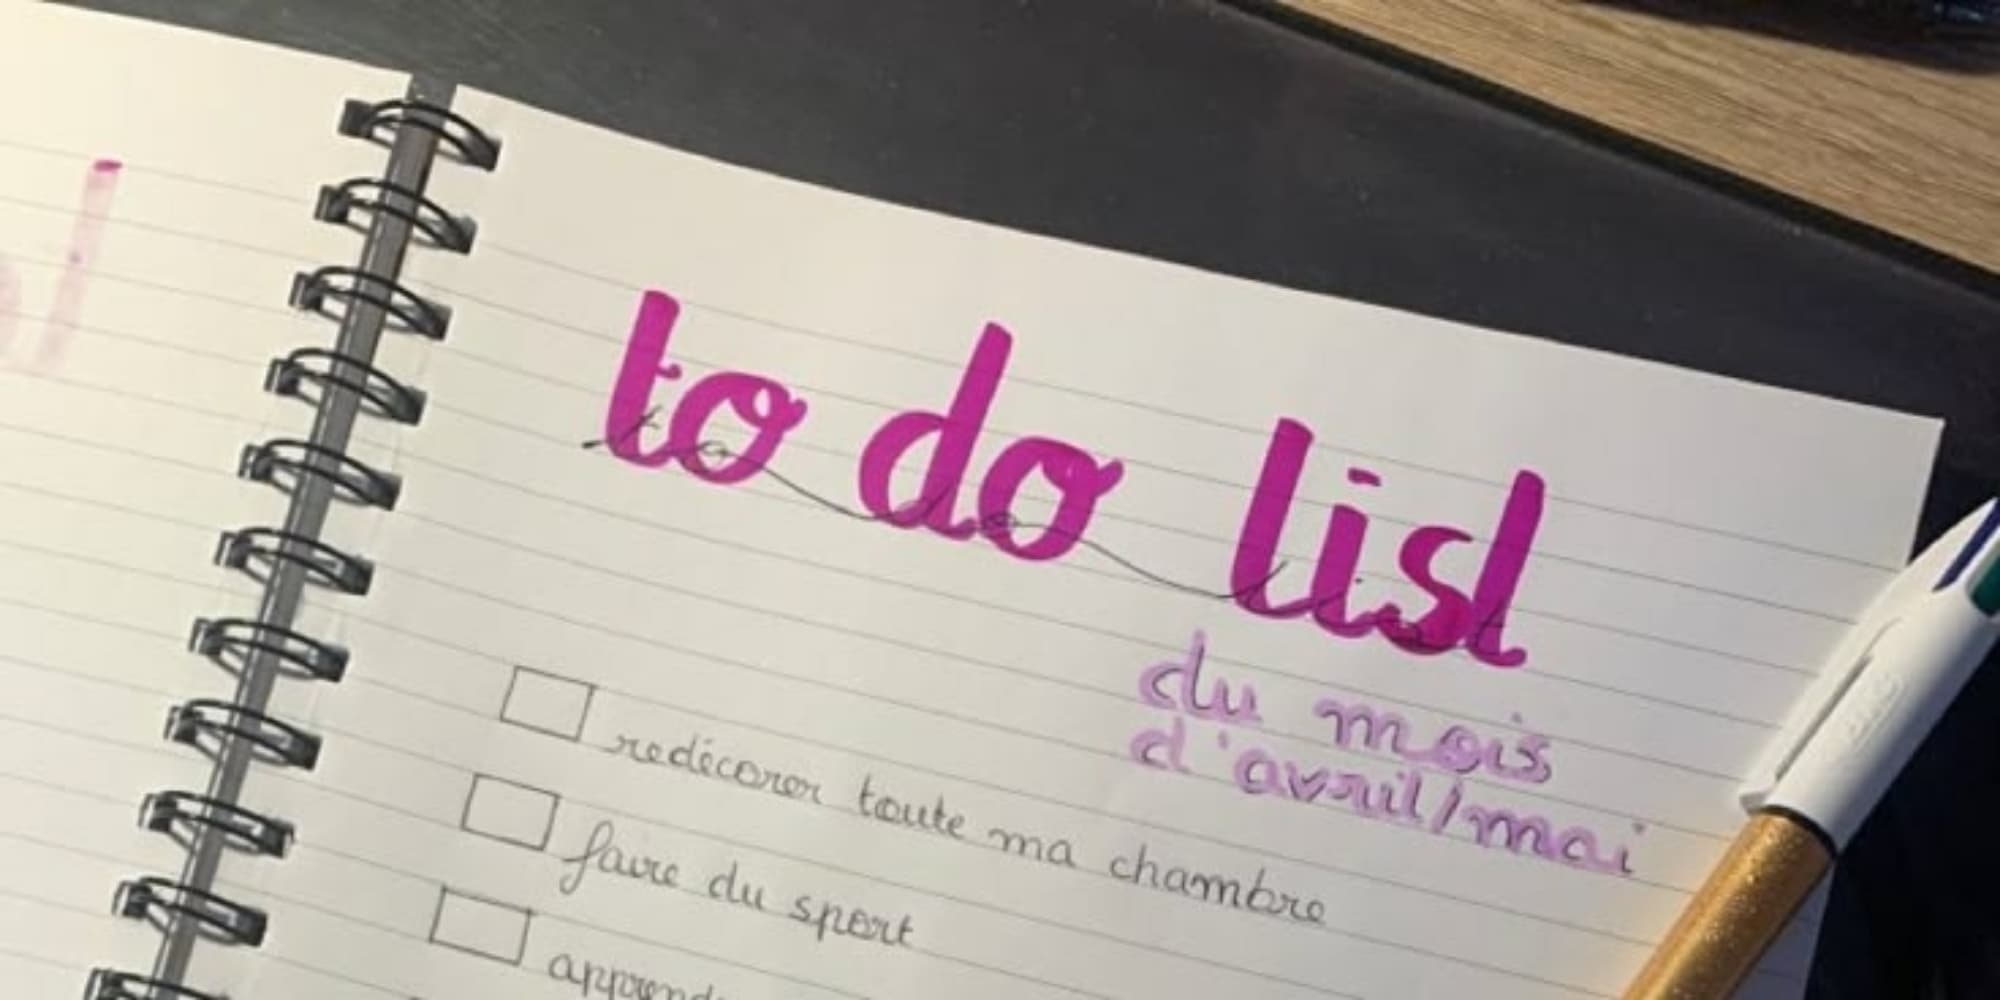 to do list
du mois
d'avril/mai
redécorer toute ma chambre
faire du sport